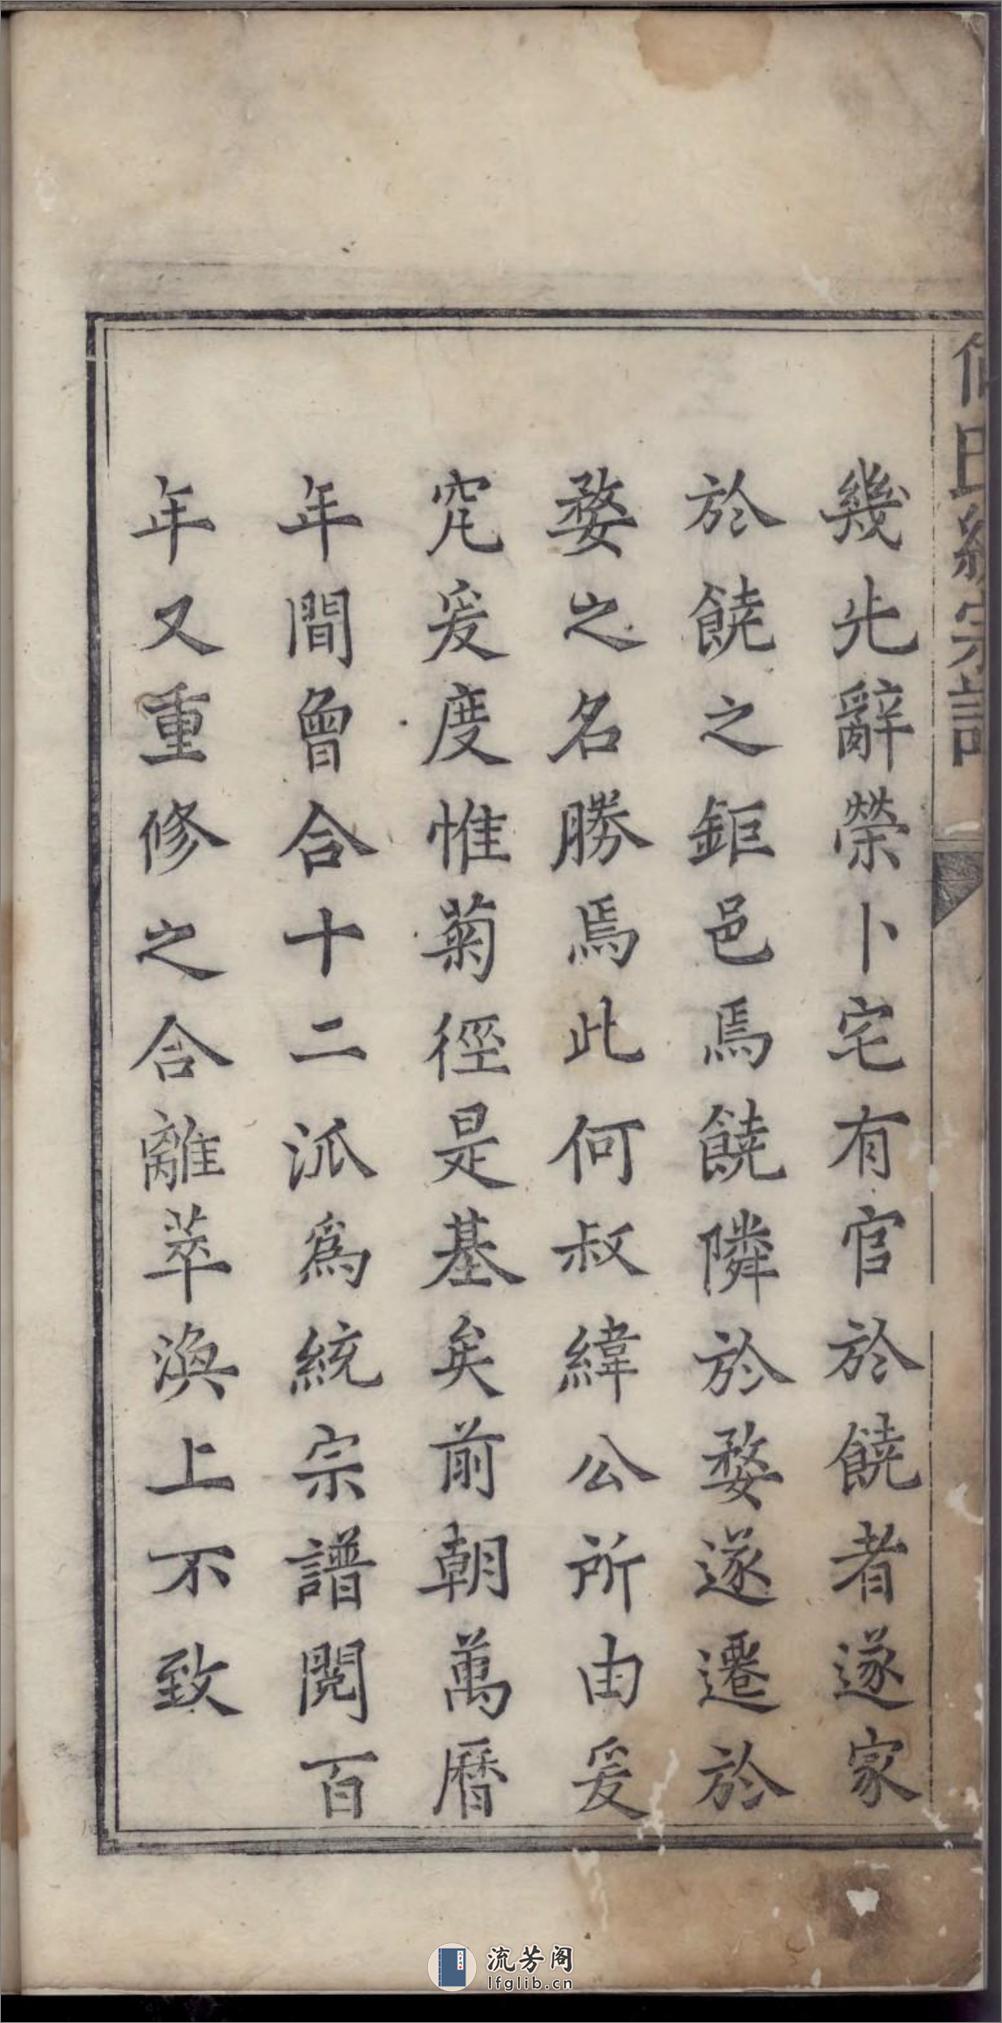 何氏統宗譜
幾先辭榮卜宅有官於饒者遂家
於饒之鉅邑焉饒隣於婺遂遷於
婺之名勝焉此何叔緯公所由爰
究爰度惟菊徑是基矣前朝萬曆
年間曾合十二派爲統宗譜閱百
年又重修之合離萃渙上不致
流芳阁
lfglib.cn